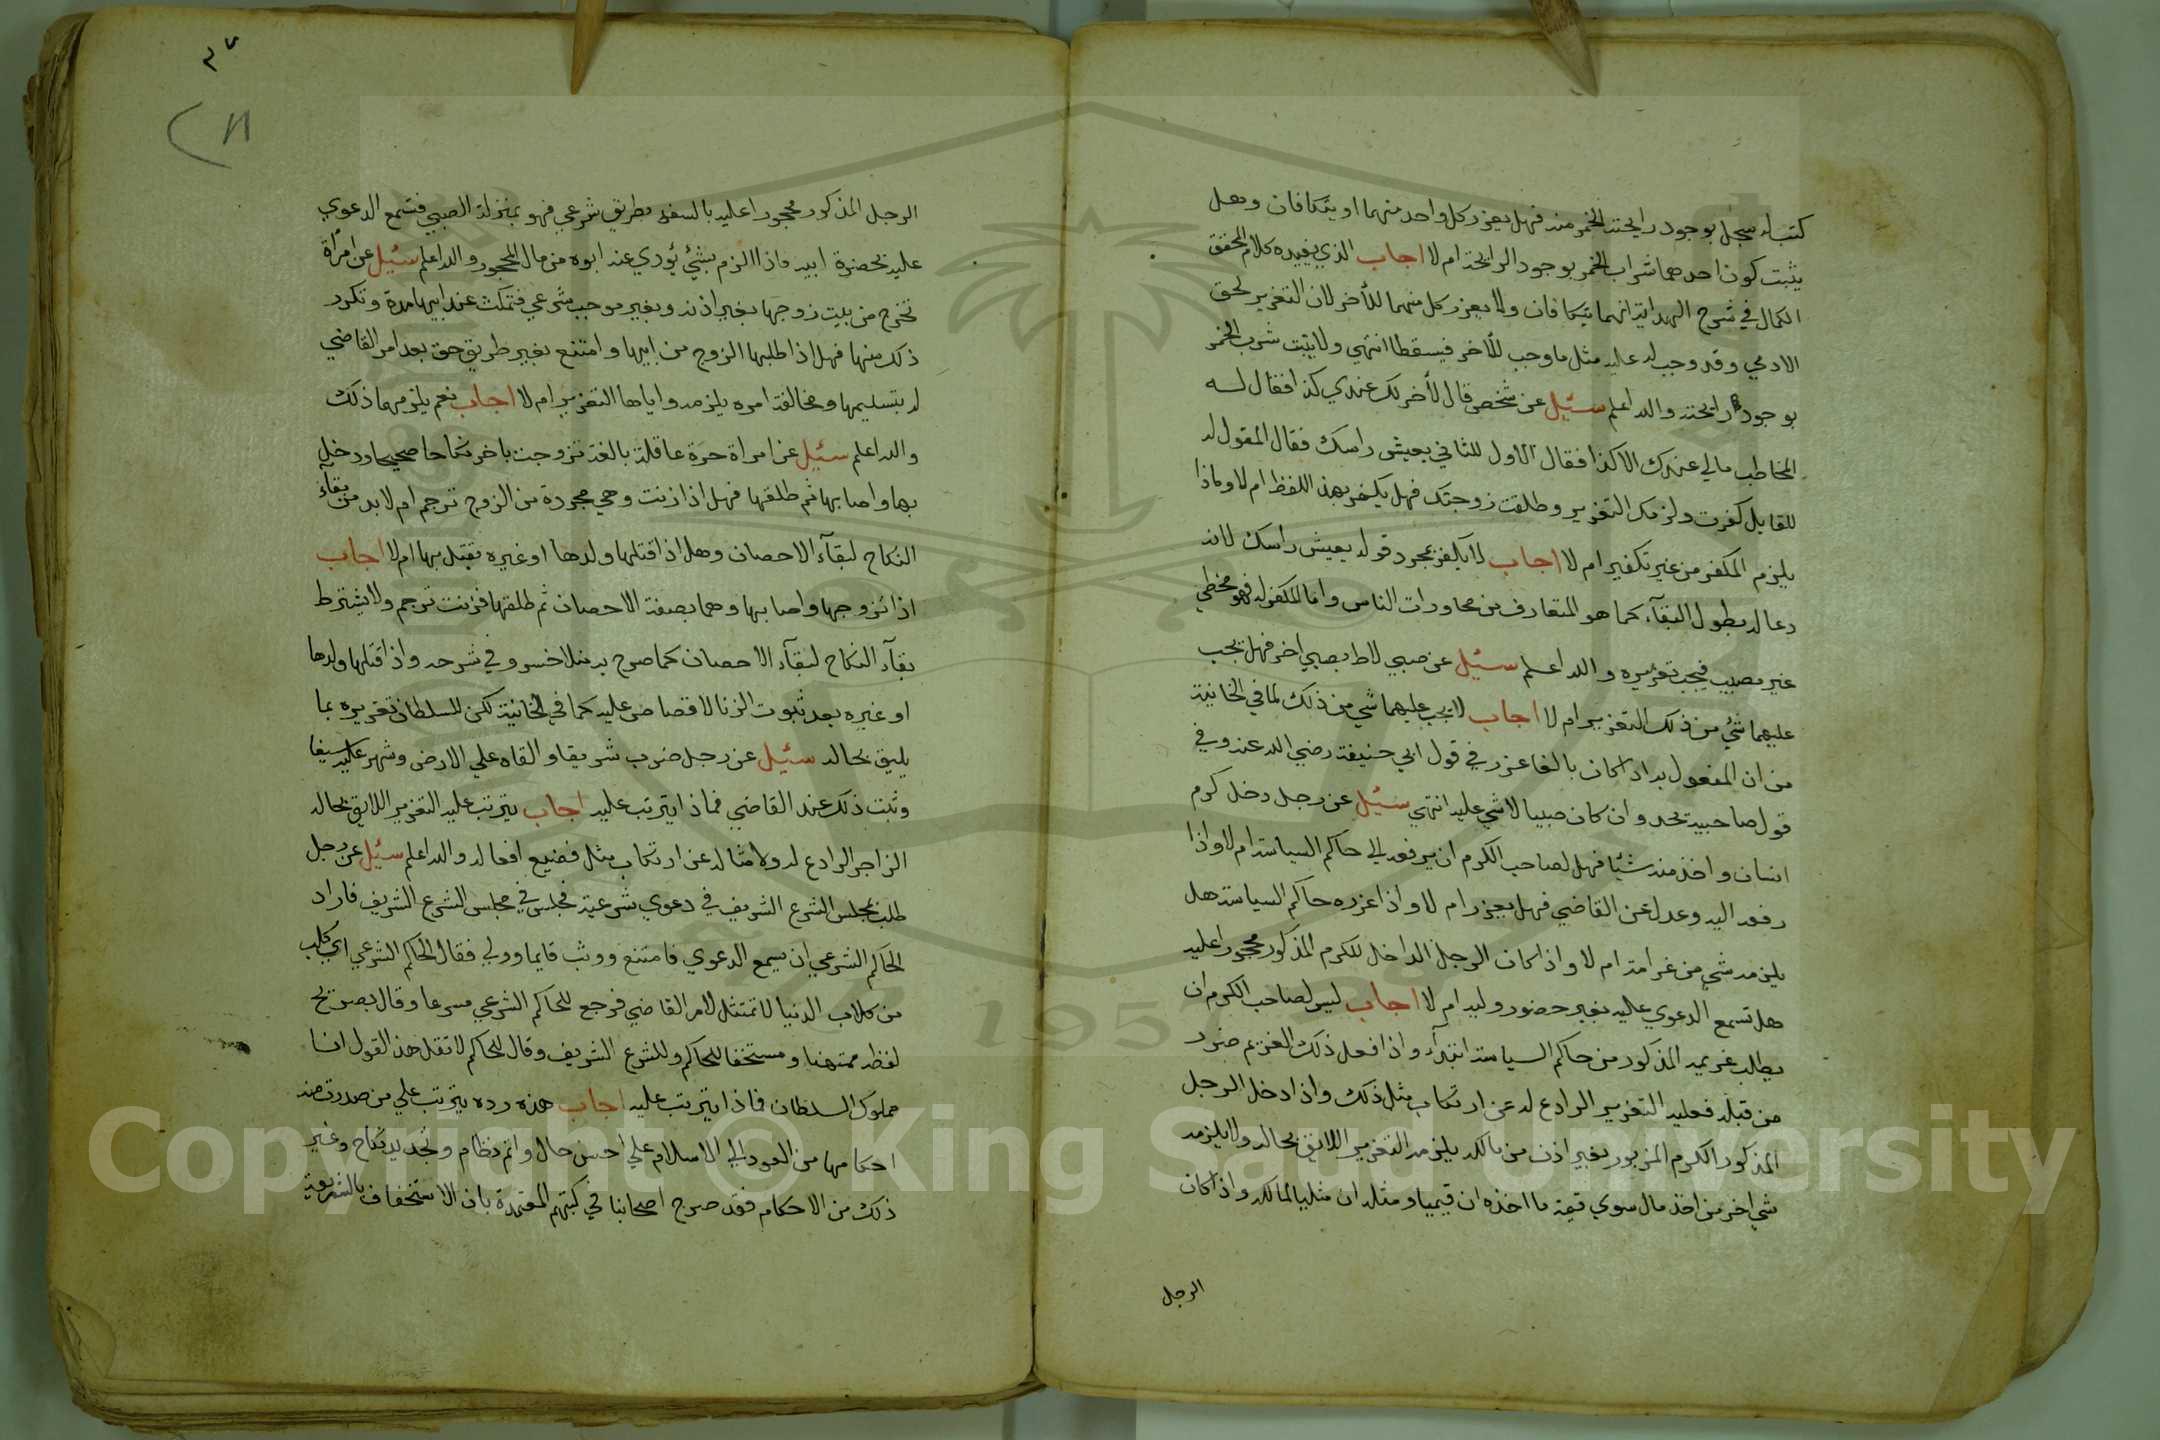 كتب اء سجل بوجود رايحة الخمر منه فهل يعزر كل واحد منهما او يتكافان وهل
يثبت كون احدهما شراب الخمر بوجود الرايحة ام لا اجاب الذي يفيده كلام المحقق
الكمال في شرح الهداية انهما يتكافان ولا يعزر كل منهما للأخر لان التعزير لحق
الادمي وقد وجب له عليه مثل ما وجب للأخر فيسقطا انتهي ولا يثبت شرب الخمر
بوجود رايحته والله اعلم سئيل عن شخص قال لأخر لك عندي كذا فقال له
المخاطب مالي عندك الا كذا فقال الاول للثاني يعيش راسك فقال المقول له
للقايل كفرت ولزمك التعزير وطلقت زوجتك فهل يكفر بهذ اللفظ ام لا وماذا
يلزم المكفر من غير تكفير ام لا اجاب لا يكفر بمجرد قوله يعيش راسك لانه
دعا له بطول البقآء كما هو المتعارف من محاورات الناس واما المكفر له فهو مخطي
غير مصيب فيجب تعزيره والله اعلم سئيل عن صبي لاط بصبي اخر فهل يجب
عليهما شئ من ذلك التعزير ام لا اجاب لا يجب عليهما شي من ذلك لما في الخانية
من ان المفعول به اذا كان بالغا عزر في قول ابي حنيفة رضي الله عنه وفي
قول صاحبيه يحد وان كان صبيا لا شي عليه انتهي سئيل عن رجل دخل كرم
انسان واخذ منه شيئا فهل لصاحب الكرم ان يرفعه الي حاكم السياسة ام لا واذا
رفعه اليه وعدل عن القاضي فهل يعزر ام لا واذا عزره حاكم السياسة هل
يلزمه شي من غرامته ام لا واذا كان الرجل الداخل للكرم المذكور محجورا عليه
هل تسمع الدعوي عليه بغير حضور وليه ام لا اجاب ليس لصاحب الكرم ان
يطالب غريمه المذكور من حاكم السياسة ابتدآء واذا فعل ذلك الغريم ضرر
من قبله فعليه التعزير الرادع له عن ارتكاب مثل ذلك واذا دخل الرجل
المذكور الكرم المزبور بغير اذن من مالكه يلزمه التعزير اللايق بحاله ولا يلزمه
شي اخر من اخذ مال سوي قيمة ما اخذه ان قيميا ومثله ان مثليا لمالكه واذا كان
الرجل
الرجل المذكور محجورا عليه بالسفه بطريق شرعي فهو بمنزلة الصبي فتسمع الدعوي
عليه بحضرة ابيه فاذا الزم بشئ يؤدي عنه ابوه من مال المحجور والله اعلم سئيل عن امرأة
تخرج من بيت زوجها بغير اذنه وبغير موجب شرعي فتمكث عند ابيها مدة وتكرر
ذلك منها فهل اذا طلبها الزوج من ابيها وامتنع بغير طريق حق بعد امر القاضي
له بتسليمها ومخالفة امره يلزمه واياها التعزير ام لا اجاب نعم يلزمهما ذلك
والله اعلم سئيل عن امراة حرة عاقلة بالغة تزوجت باخر نكاحا صحيحا ودخل
بها واصابها ثم طلقها فهل اذا زنت وهي مجردة من الزوج ترجم ام لا بد من بقاء
النكاح لبقآء الاحصان وهل اذا قتلها ولدها او غيره يقتل بها ام لا اجاب
اذا تزوجها واصابها وهما بصفة الاحصان ثم طلقها فزنت ترجم ولا يشترط
بقآء النكاح لبقآء الاحصان كما صرح به منلا خسرو في شرحه واذا قتلها ولدها
او غيره بعد ثبوت الزنا لا قصاص عليه كما في الخانية لكن للسلطان تعزيره بما
يليق بحاله سئيل عن رجل ضرب شريفا والقاه علي الارض وشهر عليه سيفا
وثبت ذلك عند القاضي فماذا يترتب عليه اجاب يترتب عليه التعزير اللايق بحاله
الزاجر الرادع له ولامثاله عن ارتكاب مثل فضيع افعاله والله اعلم سئيل عن رجل
طلب بمجلس الشرع الشريف في دعوي شرعية فجلس في مجلس الشرع الشريف فاراد
الحاكم الشرعي ان يسمع الدعوي فامتنع ووثب قايما وولي فقال الحاكم الشرعي اي كلب
من كلاب الدنيا لا تمتثل لامر القاضي فرجع للحاكم الشرعي مسرعا وقال بصريح
لفظه ممتهنا ومستخفا للحاكم وللشرع الشريف وقال للحاكم لا تقل هذ القول انا
مملوك السلطان فماذا يترتب عليه اجاب هذه رده يترتب علي من صدرت منه
احكامها من العود الي الاسلام علي احسن حال واتم نظام وتجديد نكاح وغير
ذلك من الاحكام فقد صرح اصحابنا في كتبهم المعتمدة بان الاستخفاف بالشريعة
Copyright © King Saud University
1957